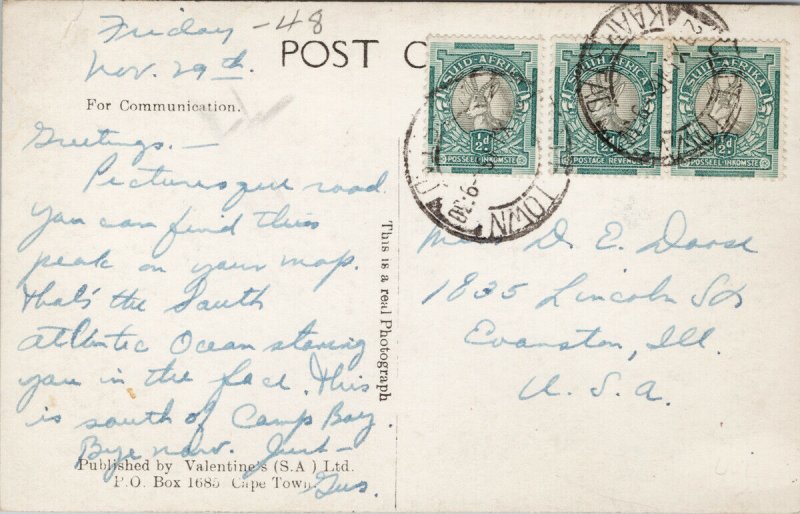 Friday -48
Nov. 29th.
POST C
For Communication.
Greetings. —
Picturesque road
you can find this
peak on your map.
That's the South
Atlantic Ocean staring
you in the face. This
is south of Camps Bay.
Bye now. Just -
Gus.
Published by Valentine's (S.A.) Ltd.
P.O. Box 1685 Cape Town.
This is a real Photograph
SUID-AFRIKA
½d
POSSEEL-INKOMSTE
SOUTH AFRICA
½d
POSTAGE REVENUE
SUID-AFRIKA
½d
POSSEEL-INKOMSTE
TOWN
KAAPSTAD
D. E. Doose
1835 Lincoln St
Evanston, Ill.
U. S. A.